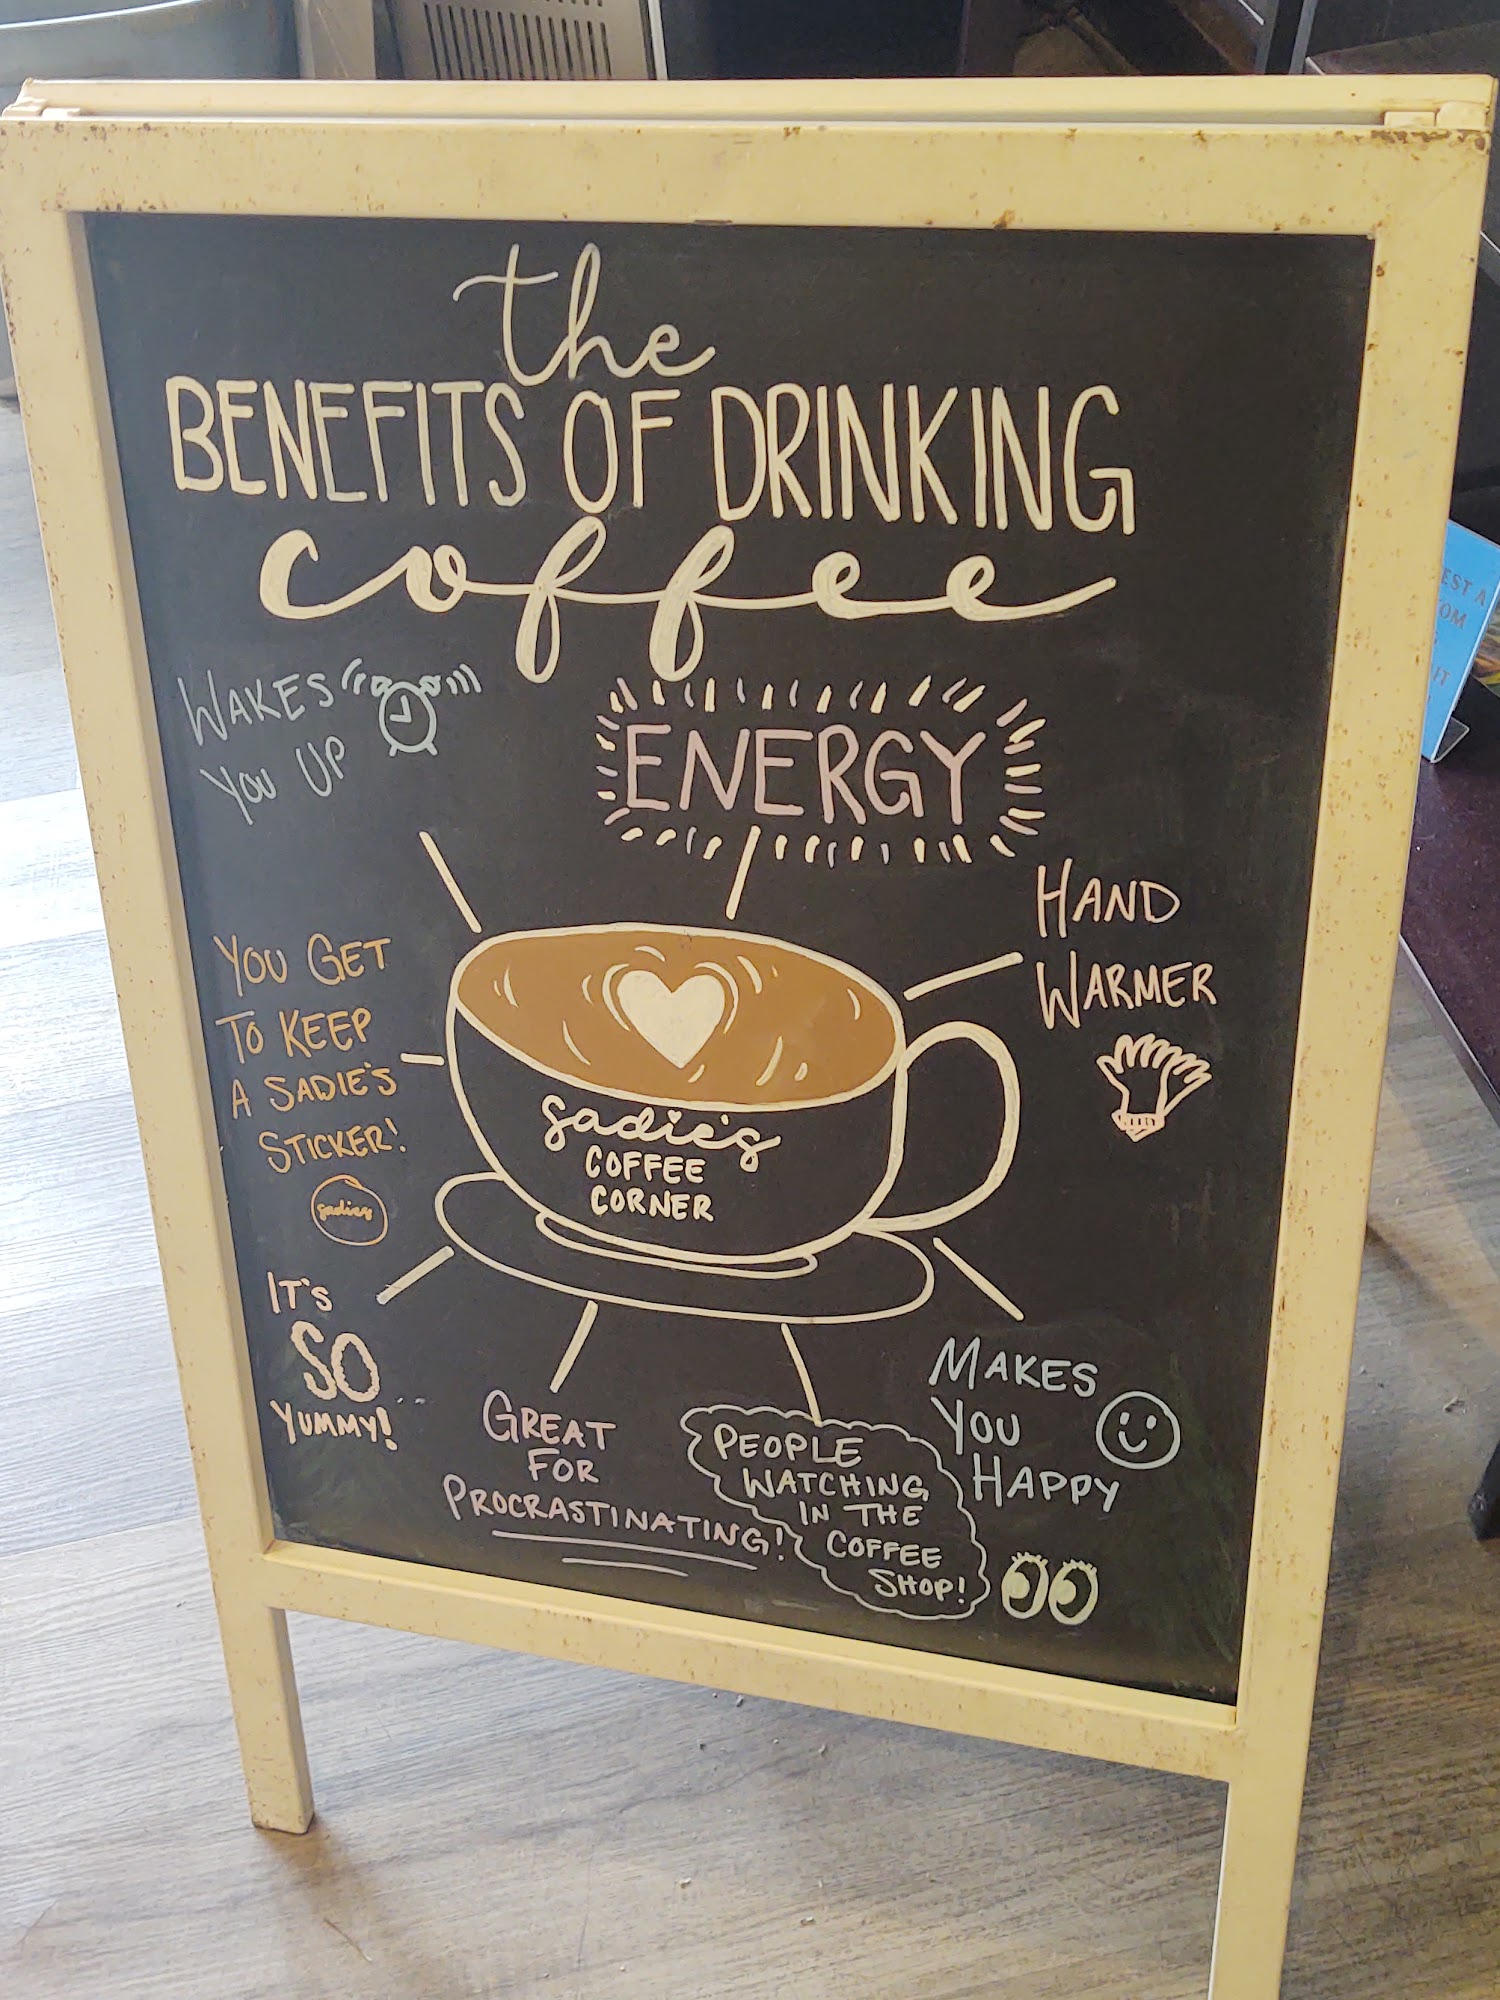 the
BENEFITS OF DRINKING
coffee
WAKES
YOU UP
ENERGY
HAND
WARMER
YOU GET
TO KEEP
A SADIE'S
STICKER!
sadies
sadie's
COFFEE
CORNER
IT'S
SO
YUMMY!
GREAT
FOR
PROCRASTINATING!
PEOPLE
WATCHING
IN THE
COFFEE
SHOP!
MAKES
YOU
HAPPY